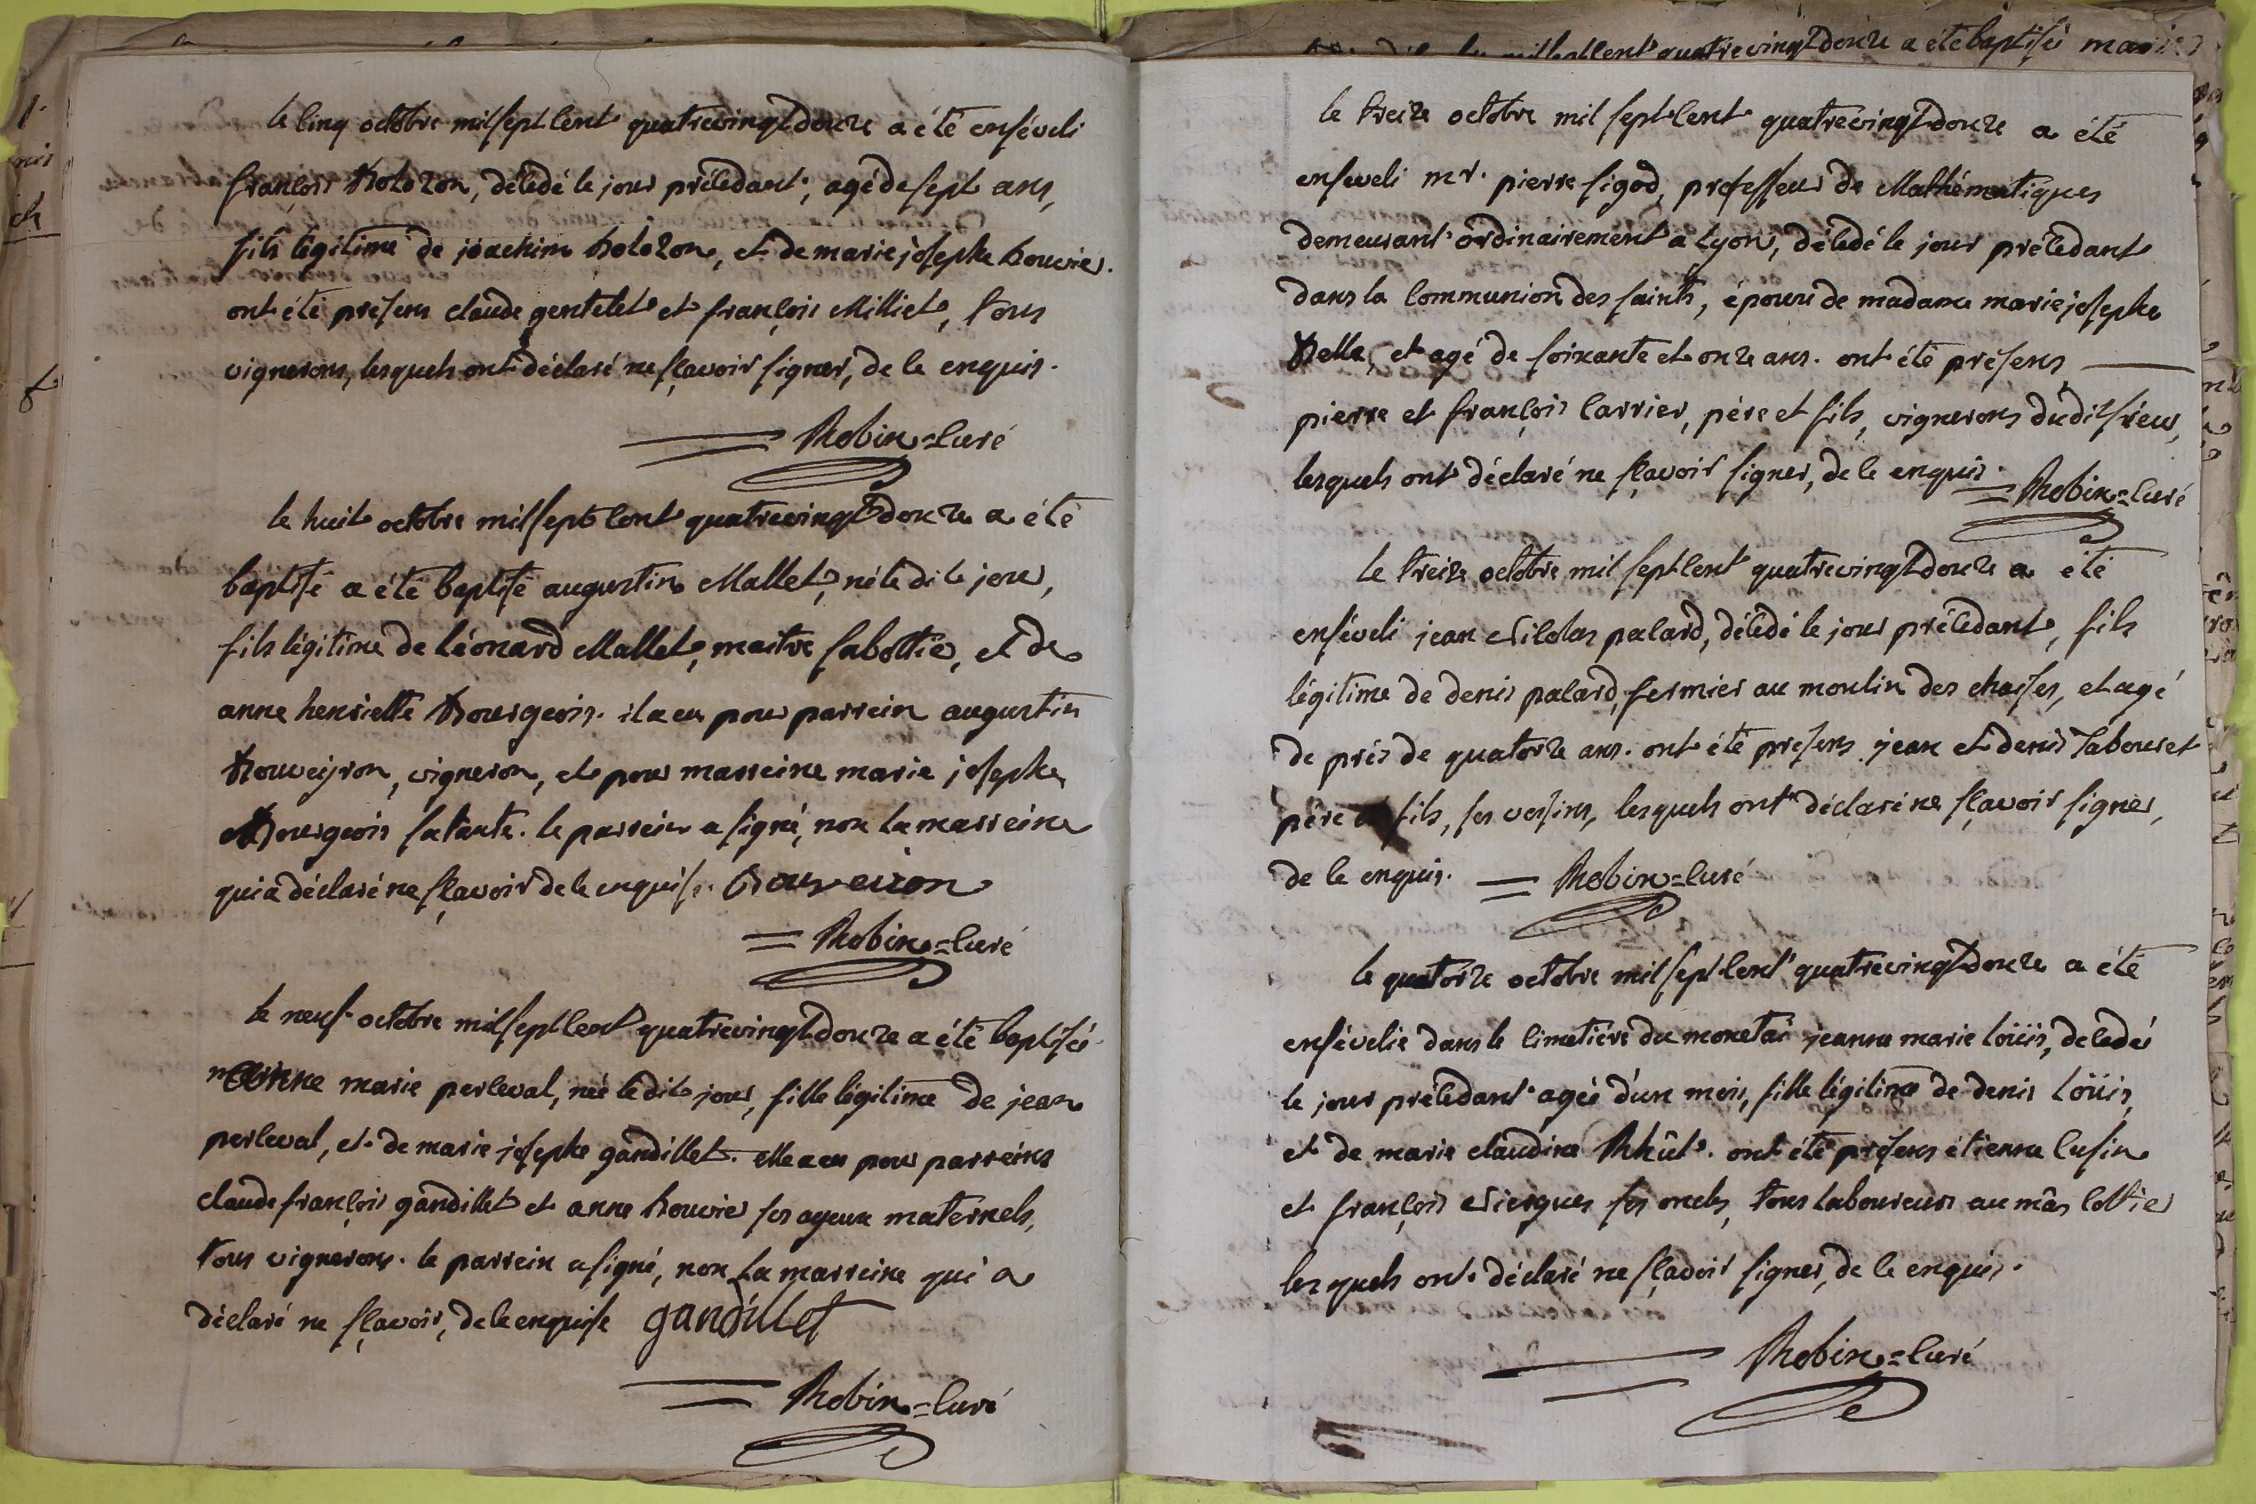 le cinq octobre mil sept cent quatrevingt douze a été enséveli
françois bolozon, décédé le jour précédant, agé de sept ans,
fils légitime de joachim bolozon, et de marie josephe bouvier.
ont été présens claude gentelet et françois Milliet, tous
vignerons, lesquels ont déclaré ne sçavoir signer, de ce enquis.
Robin = curé
le huit octobre mil sept cent quatrevingt douze a été
baptisé a été baptisé augustin Mallet, né le dit jour,
fils légitime de Léonard Mallet, maitre sabottié, et de
anne henriette Bourgeois. il a eu pour parrein augustin
Bouveyron, vigneron, et pour marreine marie josephe
Bourgeois sa tante. le parrein a signé, non la marreine
qui a déclaré ne sçavoir de ce enquise. Bouveiron
Robin = curé
le neuf octobre mil sept cent quatrevingt douze a été baptisée
marie perceval, née le dit jour, fille légitime de jean
perceval, et de marie josephe gandillet. elle a eu pour parreins
claude françois gandillet et anne bouvier ses ayeux maternels,
tous vignerons. le parrein a signé, non la marreine qui a
déclaré ne sçavoir, de ce enquise gandillet
Robin = curé
mil sept cent quatrevingt douze a été baptisé
le treize octobre mil sept cent quatrevingt douze a été
enseveli mr. pierre sigod, professeur de Mathématiques
demeurant ordinairement a Lyon, décédé le jour précédant
dans la communion des saints, époux de madame marie josephe
et agé de soixante et onze ans. ont été présens
pierre et françois Carrier, père et fils, vignerons dudit
lesquels ont déclaré ne sçavoir signer, de ce enquis.
Robin = curé
le treize octobre mil sept cent quatrevingt douze a été
enséveli jean Nicolas palard, décédé le jour précédant, fils
légitime de denis palard, fermier au moulin des chaises, et agé
de près de quatorze ans. ont été présens jean et denis Tabouret
père et fils, ses voisins, lesquels ont déclaré ne sçavoir signer,
de ce enquis. Robin = curé
le quatorze octobre mil sept cent quatrevingt douze a été
enséveli dans le cimetière du monetai jeanne marie Loüis, décedée
le jour précédant agée d'un mois, fille légitime de denis Loüis,
et de marie claudine ont été présens étienne Cusin
et françois Niergues ses oncles, tous laboureurs au mâs Cottier
lesquels ont déclaré ne sçavoir signer, de ce enquis.
Robin = curé